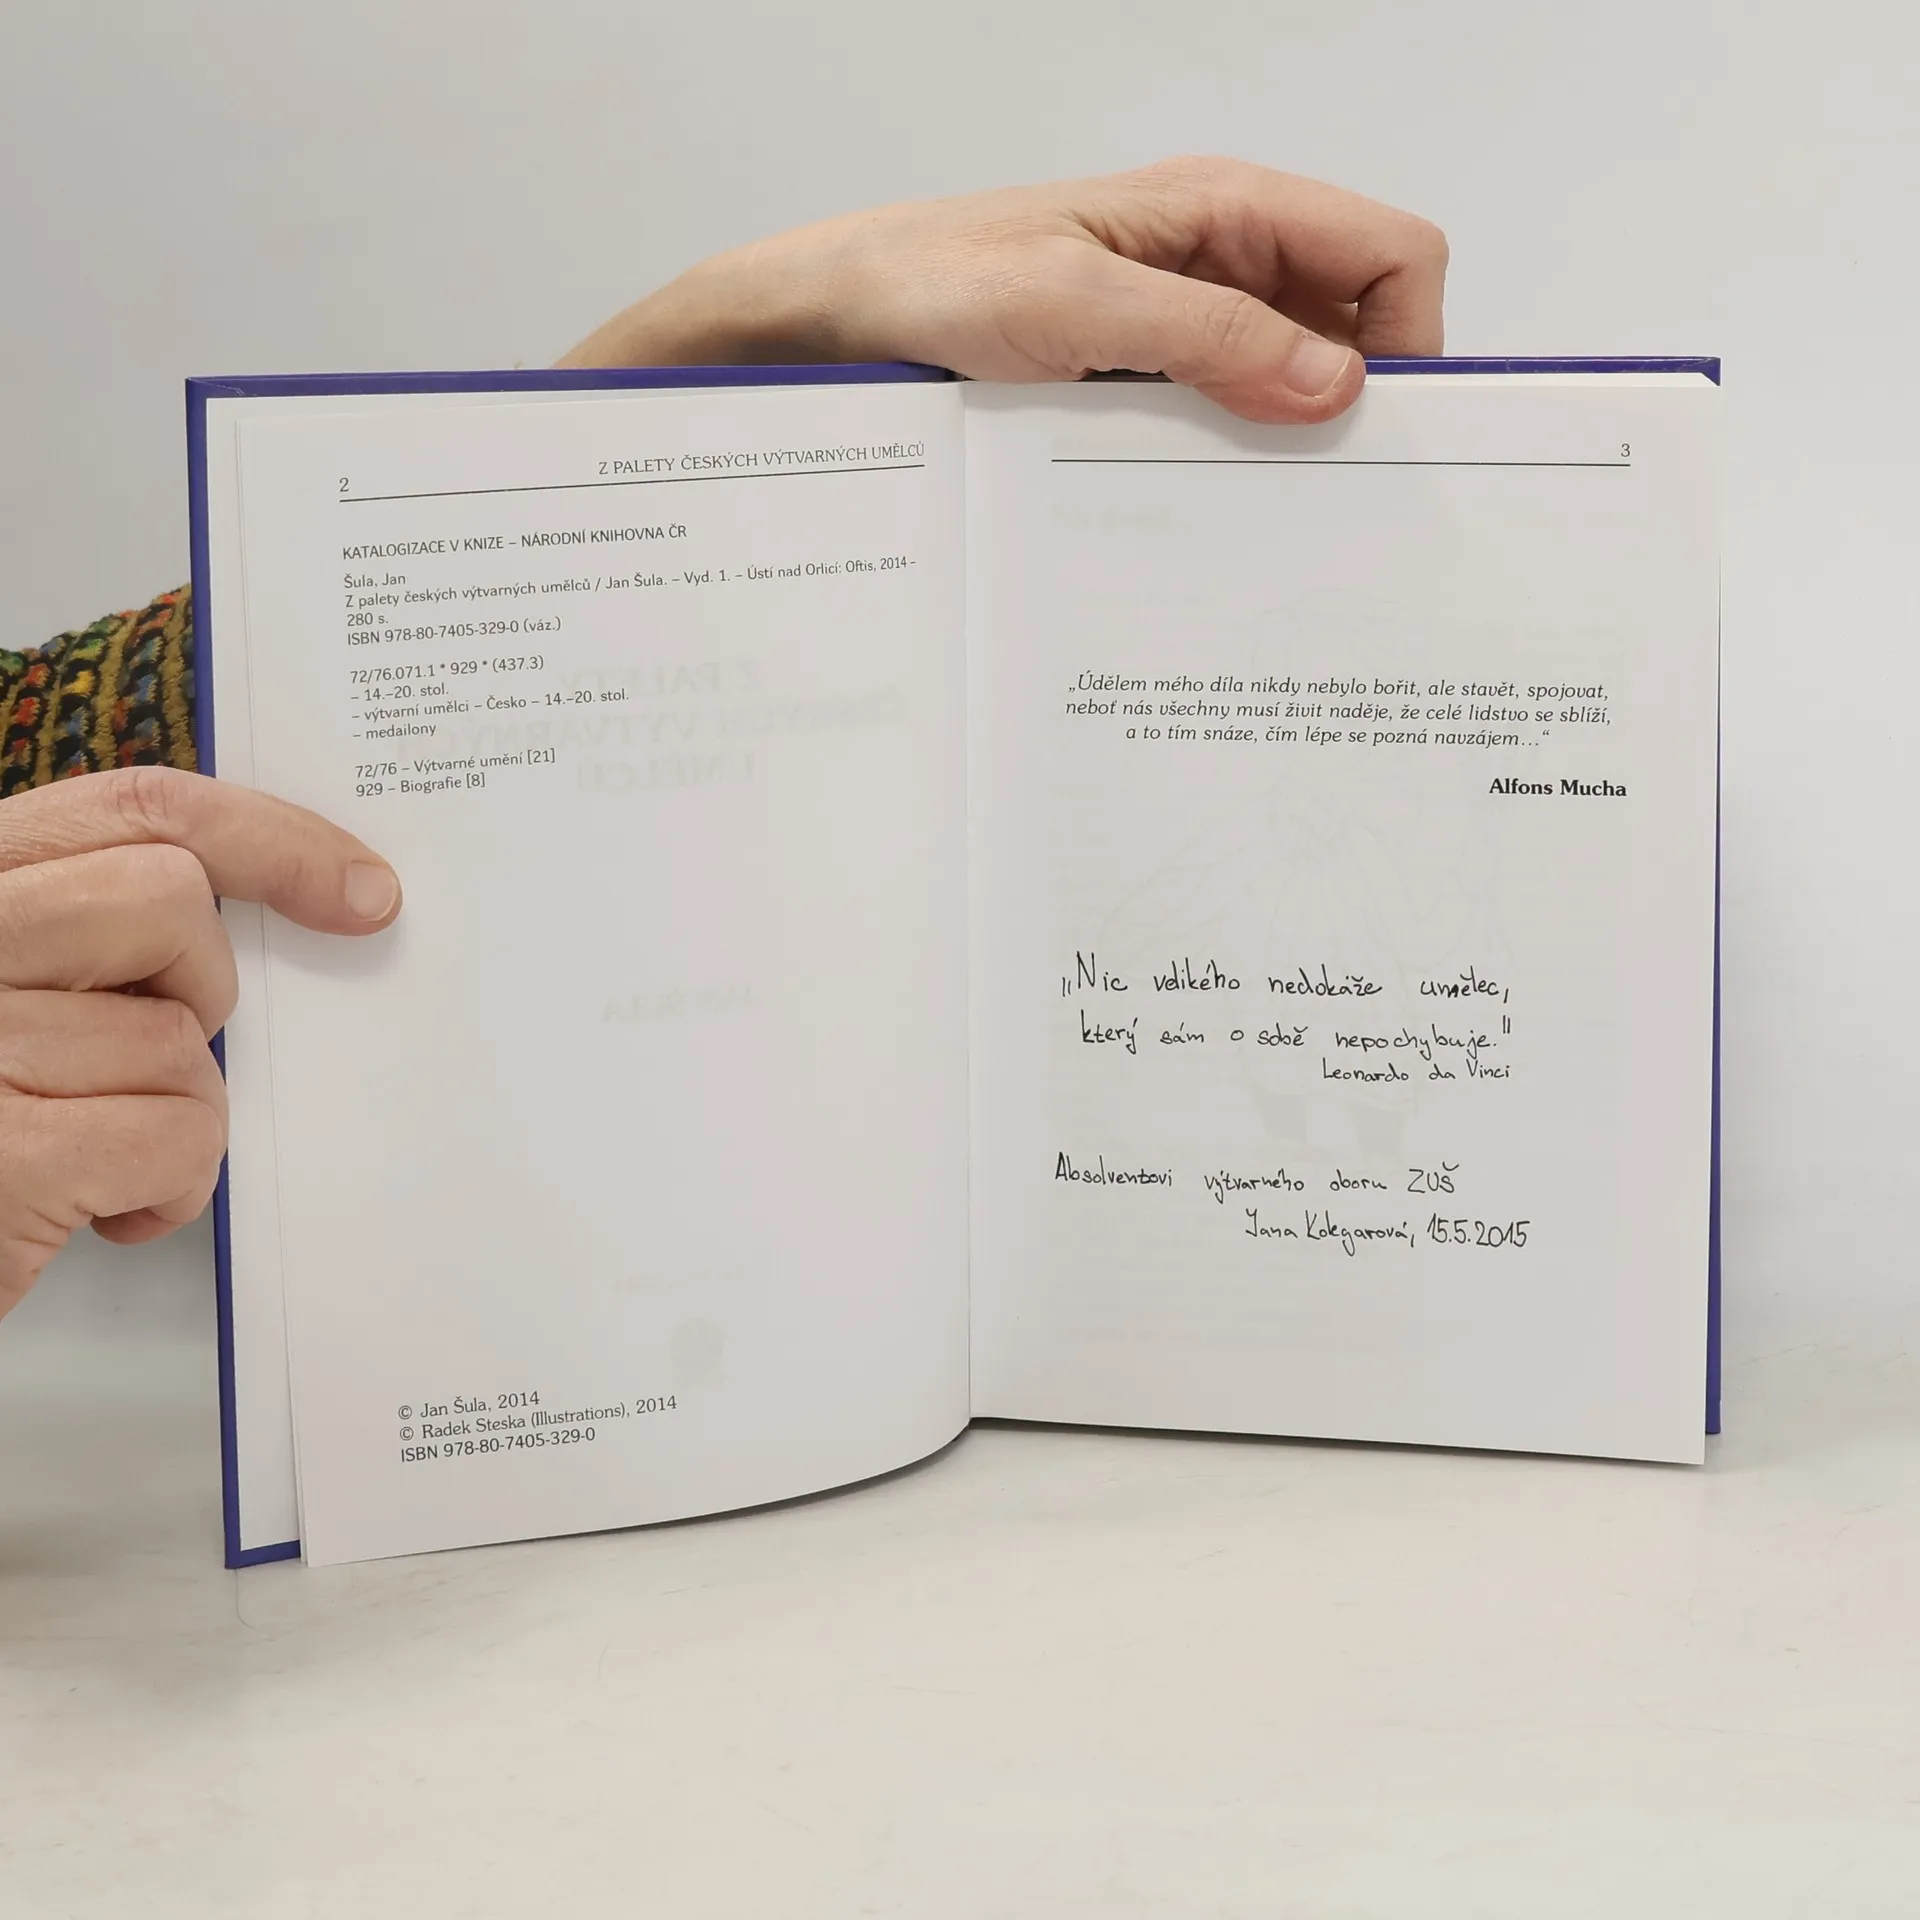 2
Z PALETY ČESKÝCH VÝTVARNÝCH UMĚLCŮ
KATALOGIZACE V KNIZE – NÁRODNÍ KNIHOVNA ČR
Šula, Jan
Z palety českých výtvarných umělců / Jan Šula. – Vyd. 1. – Ústí nad Orlicí: Oftis, 2014 –
280 s.
ISBN 978-80-7405-329-0 (váz.)
72/76.071.1 * 929 * (437.3)
– 14.–20. stol.
– výtvarní umělci – Česko – 14.–20. stol.
– medailony
72/76 – Výtvarné umění [21]
929 – Biografie [8]
© Jan Šula, 2014
© Radek Steska (Illustrations), 2014
ISBN 978-80-7405-329-0
3
„Údělem mého díla nikdy nebylo bořit, ale stavět, spojovat,
neboť nás všechny musí živit naděje, že celé lidstvo se sblíží,
a to tím snáze, čím lépe se pozná navzájem…“
Alfons Mucha
„Nic velikého nedokáže umělec,
který sám o sobě nepochybuje."
Leonardo da Vinci
Absolventovi výtvarného oboru ZUŠ
Jana Kolegarová, 15.5.2015